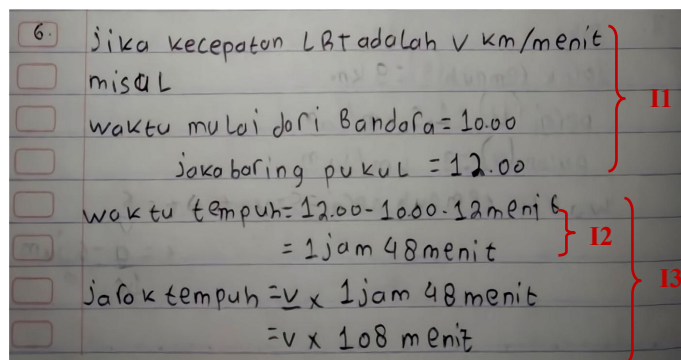 6. jika kecepatan LRT adalah v km/menit
misal
waktu mulai dari Bandara = 10.00
jakabaring pukul = 12.00
I1
waktu tempuh = 12.00 - 10.00 - 12 menit
I2
= 1 jam 48 menit
I3
jarak tempuh = v x 1 jam 48 menit
= v x 108 menit